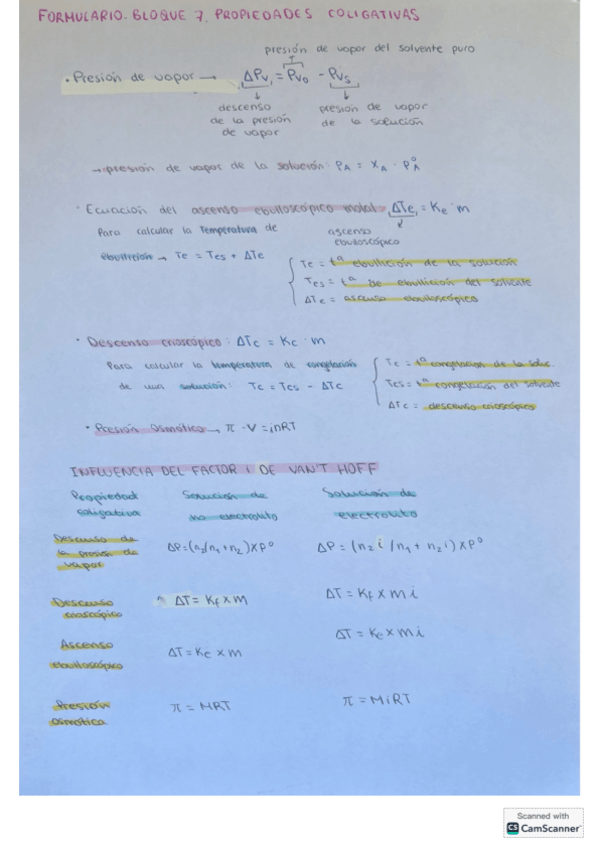 FORMULARIO. BLOQUE 7. PROPIEDADES COLIGATIVAS
presión de vapor del solvente puro
• Presión de vapor → ΔPv = Pv₀ - Pvs
descenso de la presión de vapor
presión de vapor de la solución
→ presión de vapor de la solución: PA = XA · P°A
• Ecuación del ascenso ebulloscópico molal ΔTe = Ke · m
ascenso ebulloscópico
Para calcular la temperatura de
ebullición → Te = Tes + ΔTe
Te = tª ebullición de la solución
Tes = tª de ebullición del solvente
ΔTe = ascenso ebulloscópico
• Descenso crioscópico: ΔTc = Kc · m
Para calcular la temperatura de congelación
de una solución: Tc = Tcs - ΔTc
Tc = tª congelacion de la soluc.
Tcs = tª congelación del solvente
ΔTc = descenso crioscópico
• Presión Osmótica → π · V = inRT
INFLUENCIA DEL FACTOR i DE VAN'T HOFF
Propiedad coligativa
Solución de no electrolito
Solución de electrolito
Descenso de la presión de vapor
ΔP = (n₂/n₁ + n₂) x P°
ΔP = (n₂ i / n₁ + n₂ i) x P°
Descenso crioscópico
ΔT = Kf x m
ΔT = Kf x m i
Ascenso ebulloscópico
ΔT = Ke x m
ΔT = Ke x m i
Presión osmótica
π = MRT
π = MiRT
Scanned with
CS CamScanner